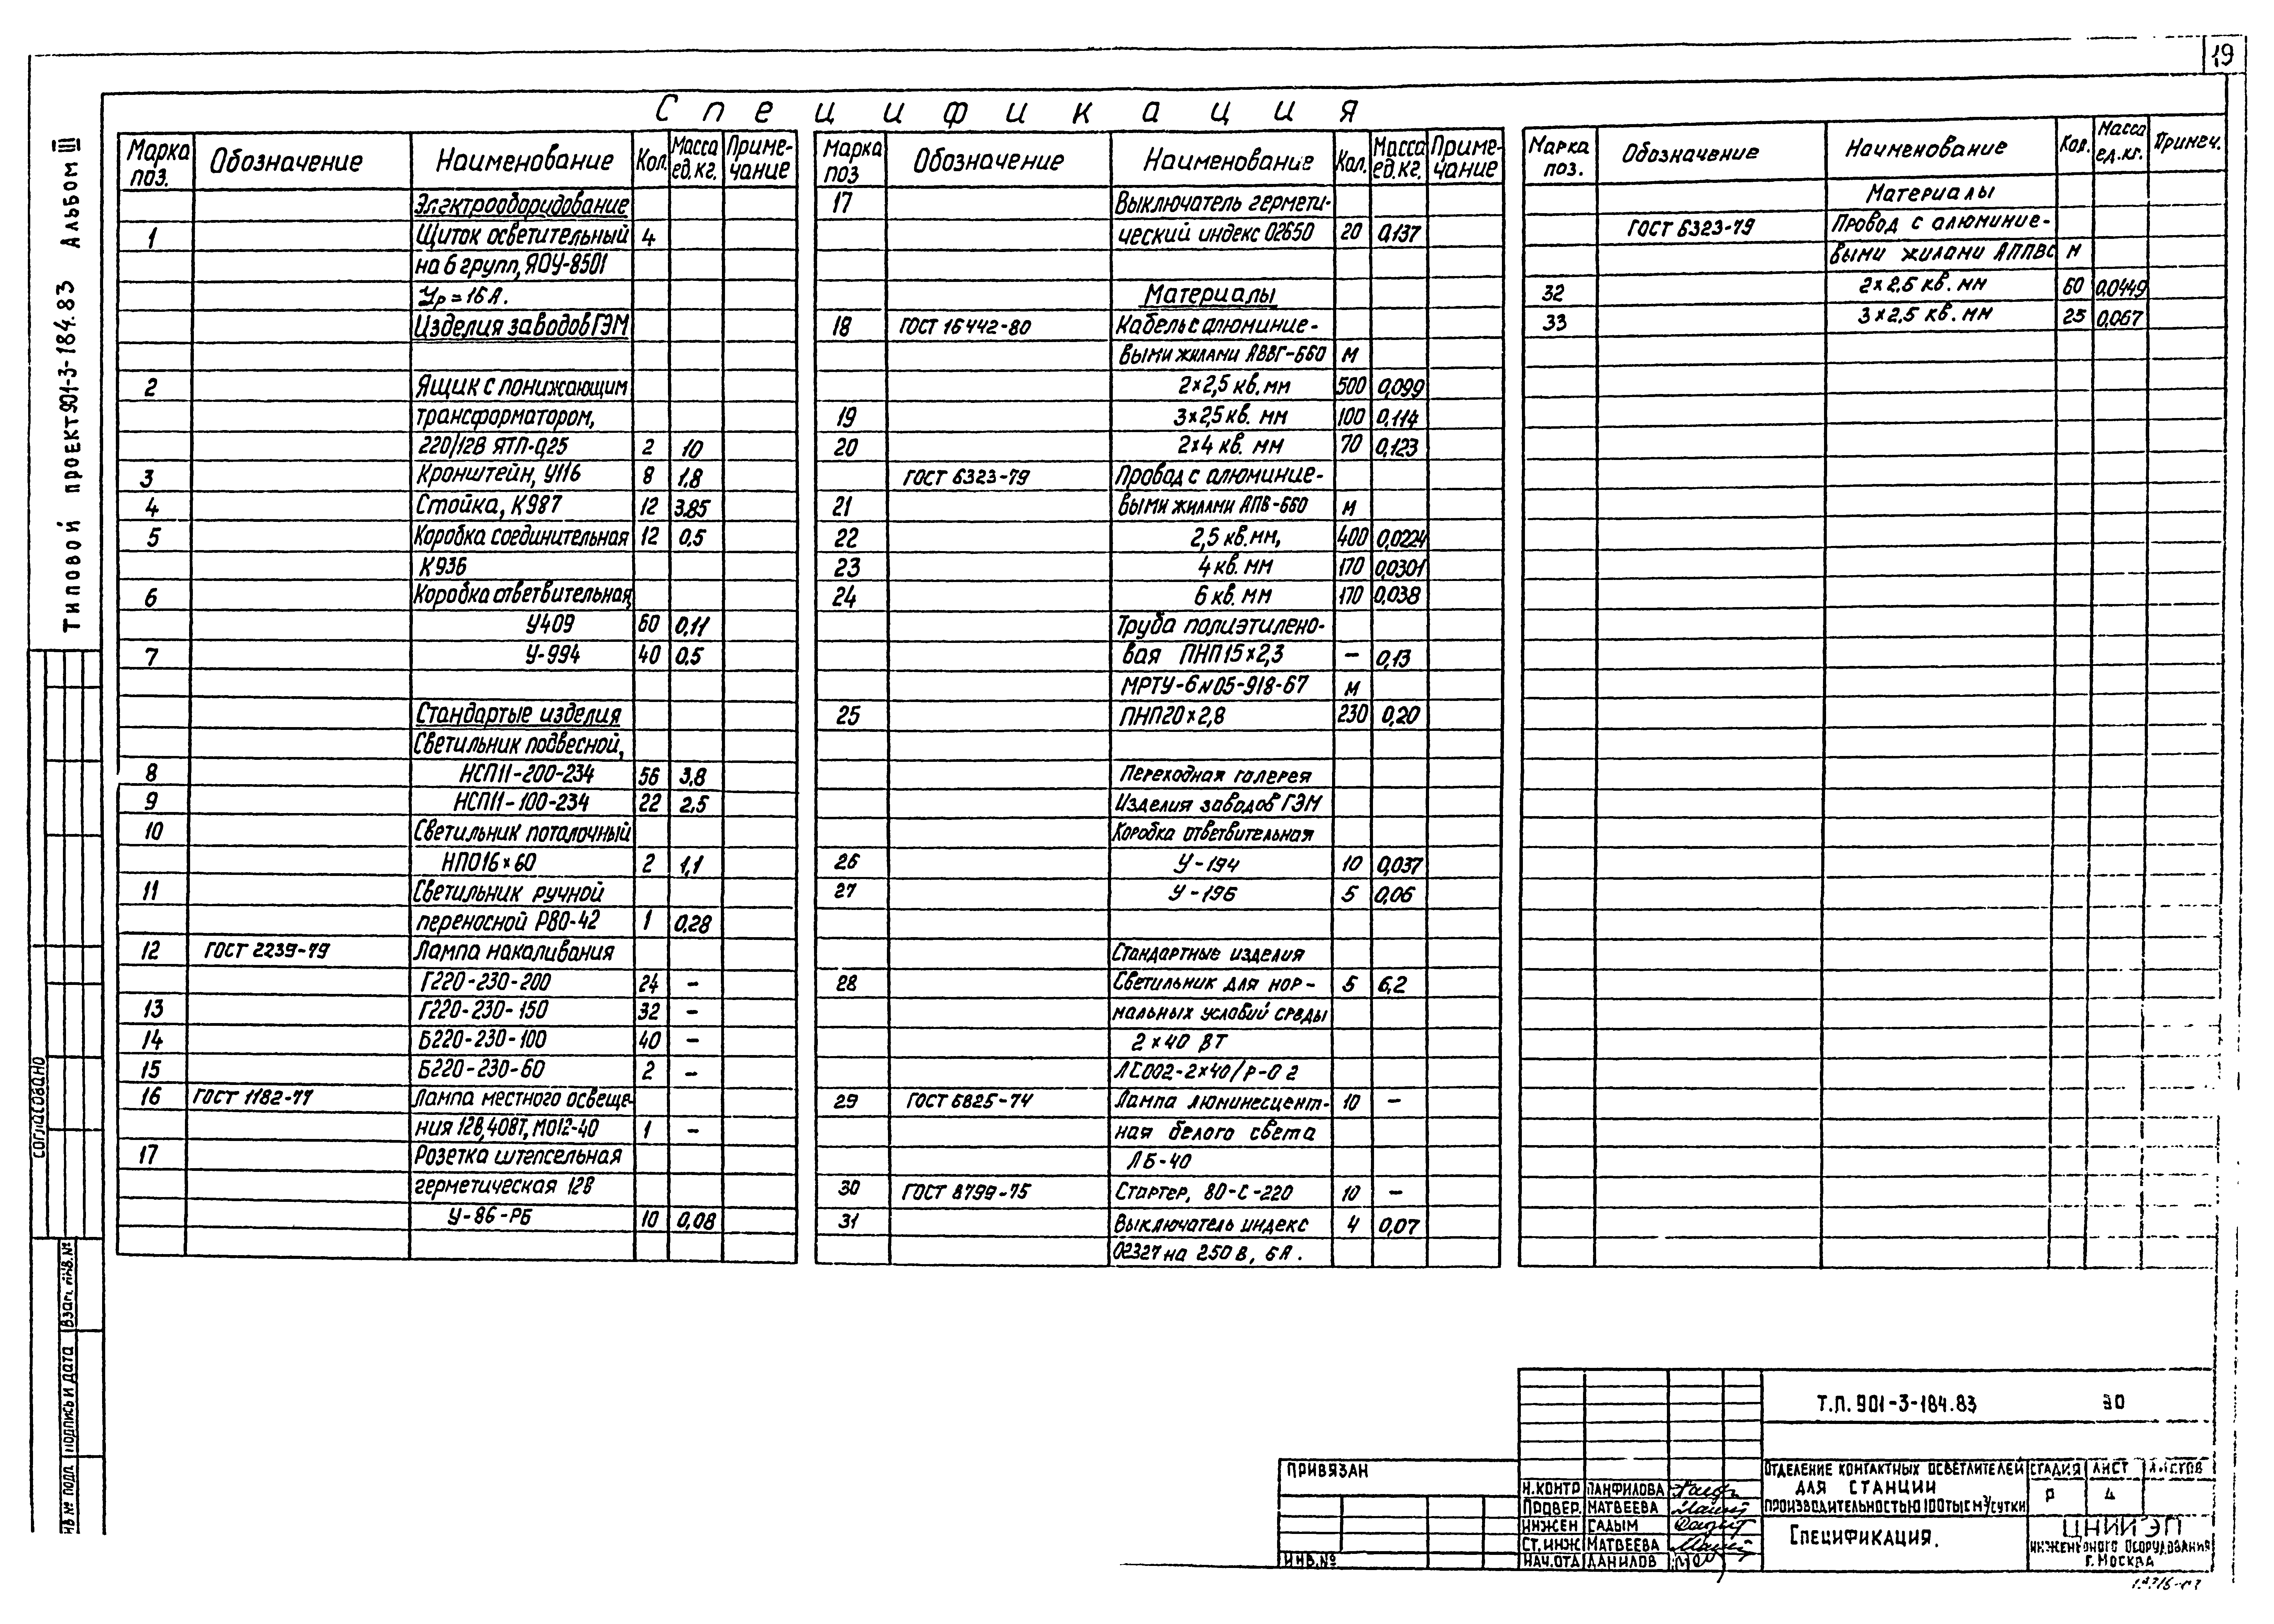 19
Спецификация
Типовой проект 901-3-184.83 Альбом III
Марка поз. Обозначение Наименование Кол. Масса ед.кг. Примечание
Электрооборудование
1 Щиток осветительный 4
на 6 групп, ЯОУ-8501
Ур=16А.
Изделия заводов ГЭМ
2 Ящик с понижающим
трансформатором,
220/12В ЯТП-0,25 2 10
3 Кронштейн, У116 8 1.8
4 Стойка, К987 12 3.85
5 Коробка соединительная 12 0,5
К936
6 Коробка ответвительная,
У409 60 0,11
7 У-994 40 0.5
Стандартые изделия
Светильник подвесной,
8 НСП11-200-234 56 3,8
9 НСП11-100-234 22 2.5
10 Светильник поталочный
НПО16×60 2 1,1
11 Светильник ручной
переносной Р80-42 1 0,28
12 ГОСТ 2239-79 Лампа накаливания
Г220-230-200 24 –
13 Г220-230-150 32 –
14 Б220-230-100 40 –
15 Б220-230-60 2 –
16 ГОСТ 1182-77 Лампа местного освеще-
ния 12В, 40ВТ, МО12-40 1 –
17 Розетка штепсельная
герметическая 12В
У-86-РБ 10 0,08
Марка поз Обозначение Наименование Кол. Масса ед.кг. Примечание
17 Выключатель гермети-
ческий индекс 02650 20 0,137
Материалы
18 ГОСТ 16442-80 Кабель с алюминие-
выми жилами АВВГ-660 м
2×2,5 кв. мм 500 0,099
19 3×2,5 кв. мм 100 0.114
20 2×4 кв. мм 70 0,123
ГОСТ 6323-79 Провод с алюминие-
21 выми жилами АПВ-660 м
22 2,5 кв.мм, 400 0,0224
23 4 кв. мм 170 0,0301
24 6 кв. мм 170 0,038
Труба полиэтилено-
вая ПНП 15×2,3 – 0,13
МРТУ-6N05-918-67 м
25 ПНП20×2,8 230 0,20
Переходная галерея
Изделия заводов ГЭМ
Коробка ответвительная
26 У-194 10 0,037
27 У-196 5 0,06
Стандартные изделия
28 Светильник для нор- 5 6,2
мальных условий среды
2×40 ВТ
ЛСО02-2×40/Р-02
29 ГОСТ 6825-74 Лампа люминесцент- 10 –
ная белого света
ЛБ-40
30 ГОСТ 8799-75 Стартер, 80-С-220 10 –
31 Выключатель индекс 4 0,07
02327 на 250 В, 6А.
Марка поз. Обозначение Наименование Кол. Масса ед.кг. Примеч.
Материалы
ГОСТ 6323-79 Провод с алюминие-
выми жилами АППВС м
32 2×2,5 кв. мм 60 0.0449
33 3×2,5 кв. мм 25 0,067
Согласовано
Взам. инв.№
Подпись и дата
Инв № подл.
Привязан
Инв.№
Н.контр Панфилова
Провер. Матвеева
Инжен Гадым
Ст.инж Матвеева
Нач.отд Данилов
Т.П. 901-3-184.83 ЭО
Отделение контактных осветлителей
для станции
производительностью 100 тыс м³/сутки
Стадия Лист Листов
Р 4
Спецификация.
ЦНИИЭП
инженерного оборудования
г. Москва